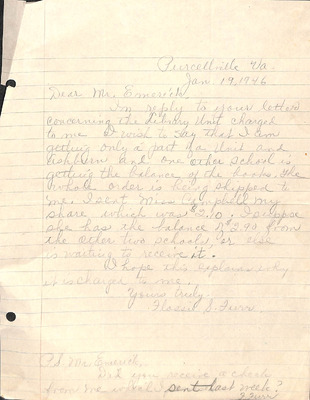 Purcellville Va.
Jan. 19, 1946
Dear Mr. Emerick,
In reply to your letter
concerning the library Unit charged
to me I wish to say that I am
getting only a part of Unit and
Ashburn and one other school is
getting the balance of the books. The
whole order is being shipped to
me. I sent Miss Campbell my
share which was $2.10. I suppose
she has the balance from
the other two schools, or else
is waiting to receive it.
I hope this explains why
is charged to me.
Yours truly
Flossie S. Furr
P.S. Mr. Emerick,
Did you receive a check
from me which sent last week?
F. Furr